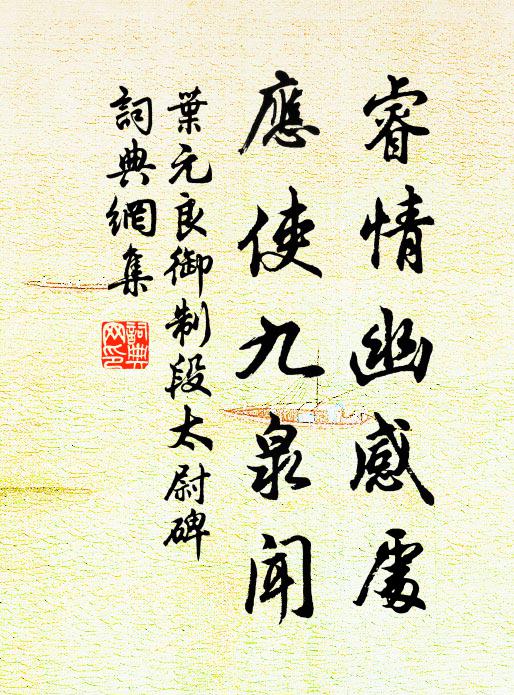 睿情幽感處
應使九泉聞
葉元良御制段太尉碑
詞典網集
詞典網印